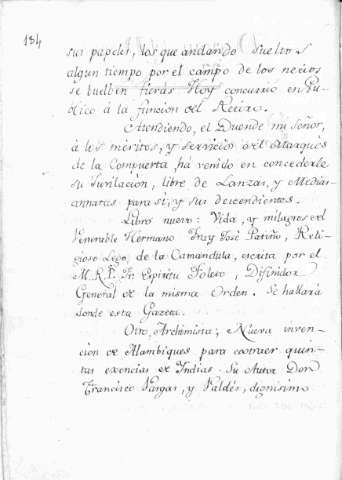 134
sus papeles, los que andando sueltos
algun tiempo por el campo de los necios
se buelben fieras Hoy concurrió en Pu-
blico á la funcion del Retiro.
Atendiendo, el Duende mi Señor,
á los méritos, y servicios del Marques
de la Compuerta, há venido en concederle
su Juvilacion, libre de Lanzas, y Medias-
annatas para sí, y sus descendientes.
Libro nuevo: Vida, y milagros del
Venerable Hermano Fray José Patiño, Reli-
gioso Lego de la Camandula, escrita por el
M.R.P. Fr. Espiritu Soleto, Difinidor
General de la misma Orden. Se hallará
donde esta Gazeta.
Otro, Archimista; Nueva inven-
cion de Alambiques para extraer quin-
tas esencias de Indias. Su Autor Don
Francisco Vargas, y Valdés, dignisimo